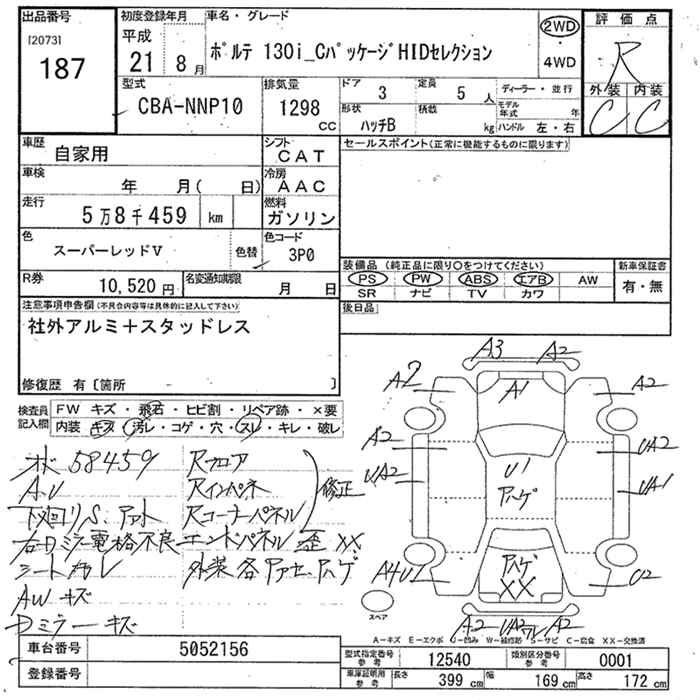 出品番号
[2073]
187
初度登録年月
平成
21年 8月
車名・グレード
ポルテ 130i_CパッケージHIDセレクション
2WD
・
4WD
評価点
R
外装 内装
C C
型式
CBA-NNP10
排気量
1298
CC
ドア
3
定員
5人
形状
ハッチB
積載
kg
ディーラー・並行
モデル年式 年
ハンドル 左・右
車歴
自家用
シフト
CAT
車検
年 月( 日)
冷房
AAC
走行
5万8千459 km
燃料
ガソリン
色
スーパーレッドV
色替
色コード
3P0
R券
10,520円
名変通知期限
月 日
セールスポイント(正常に機能するものに限ります)
装備品 (純正品に限り○をつけてください)
PS PW ABS エアB AW
SR ナビ TV カワ
新車保証書
有・無
後日品
注意事項申告欄(不具合内容等は具体的に記入して下さい)
社外アルミ+スタッドレス
修復歴 有〔箇所 〕
検査員記入欄
FW キズ・飛石・ヒビ割・リペア跡・×要
内装 キズ・汚レ・コゲ・穴・スレ・キレ・破レ
58459
AU
右Dミラー電格不良
AWキズ
Dミラーキズ
Rフロア
Rインパネ
Rコーナーパネル
修正
エンドパネル歪 XX
A3 A2
A2 A1 A2
A2 UA2
UA2 U1 UA1
XX
A4U2 U2
A2 UA2 A2
スペア
A-キズ E-エクボ U-凹み W-補修跡 S-サビ C-腐食 XX-交換済
車台番号
5052156
登録番号
型式指定番号
参考
12540
類別区分番号
参考
0001
車庫証明用
参考
長さ 399 cm
幅 169 cm
高さ 172 cm